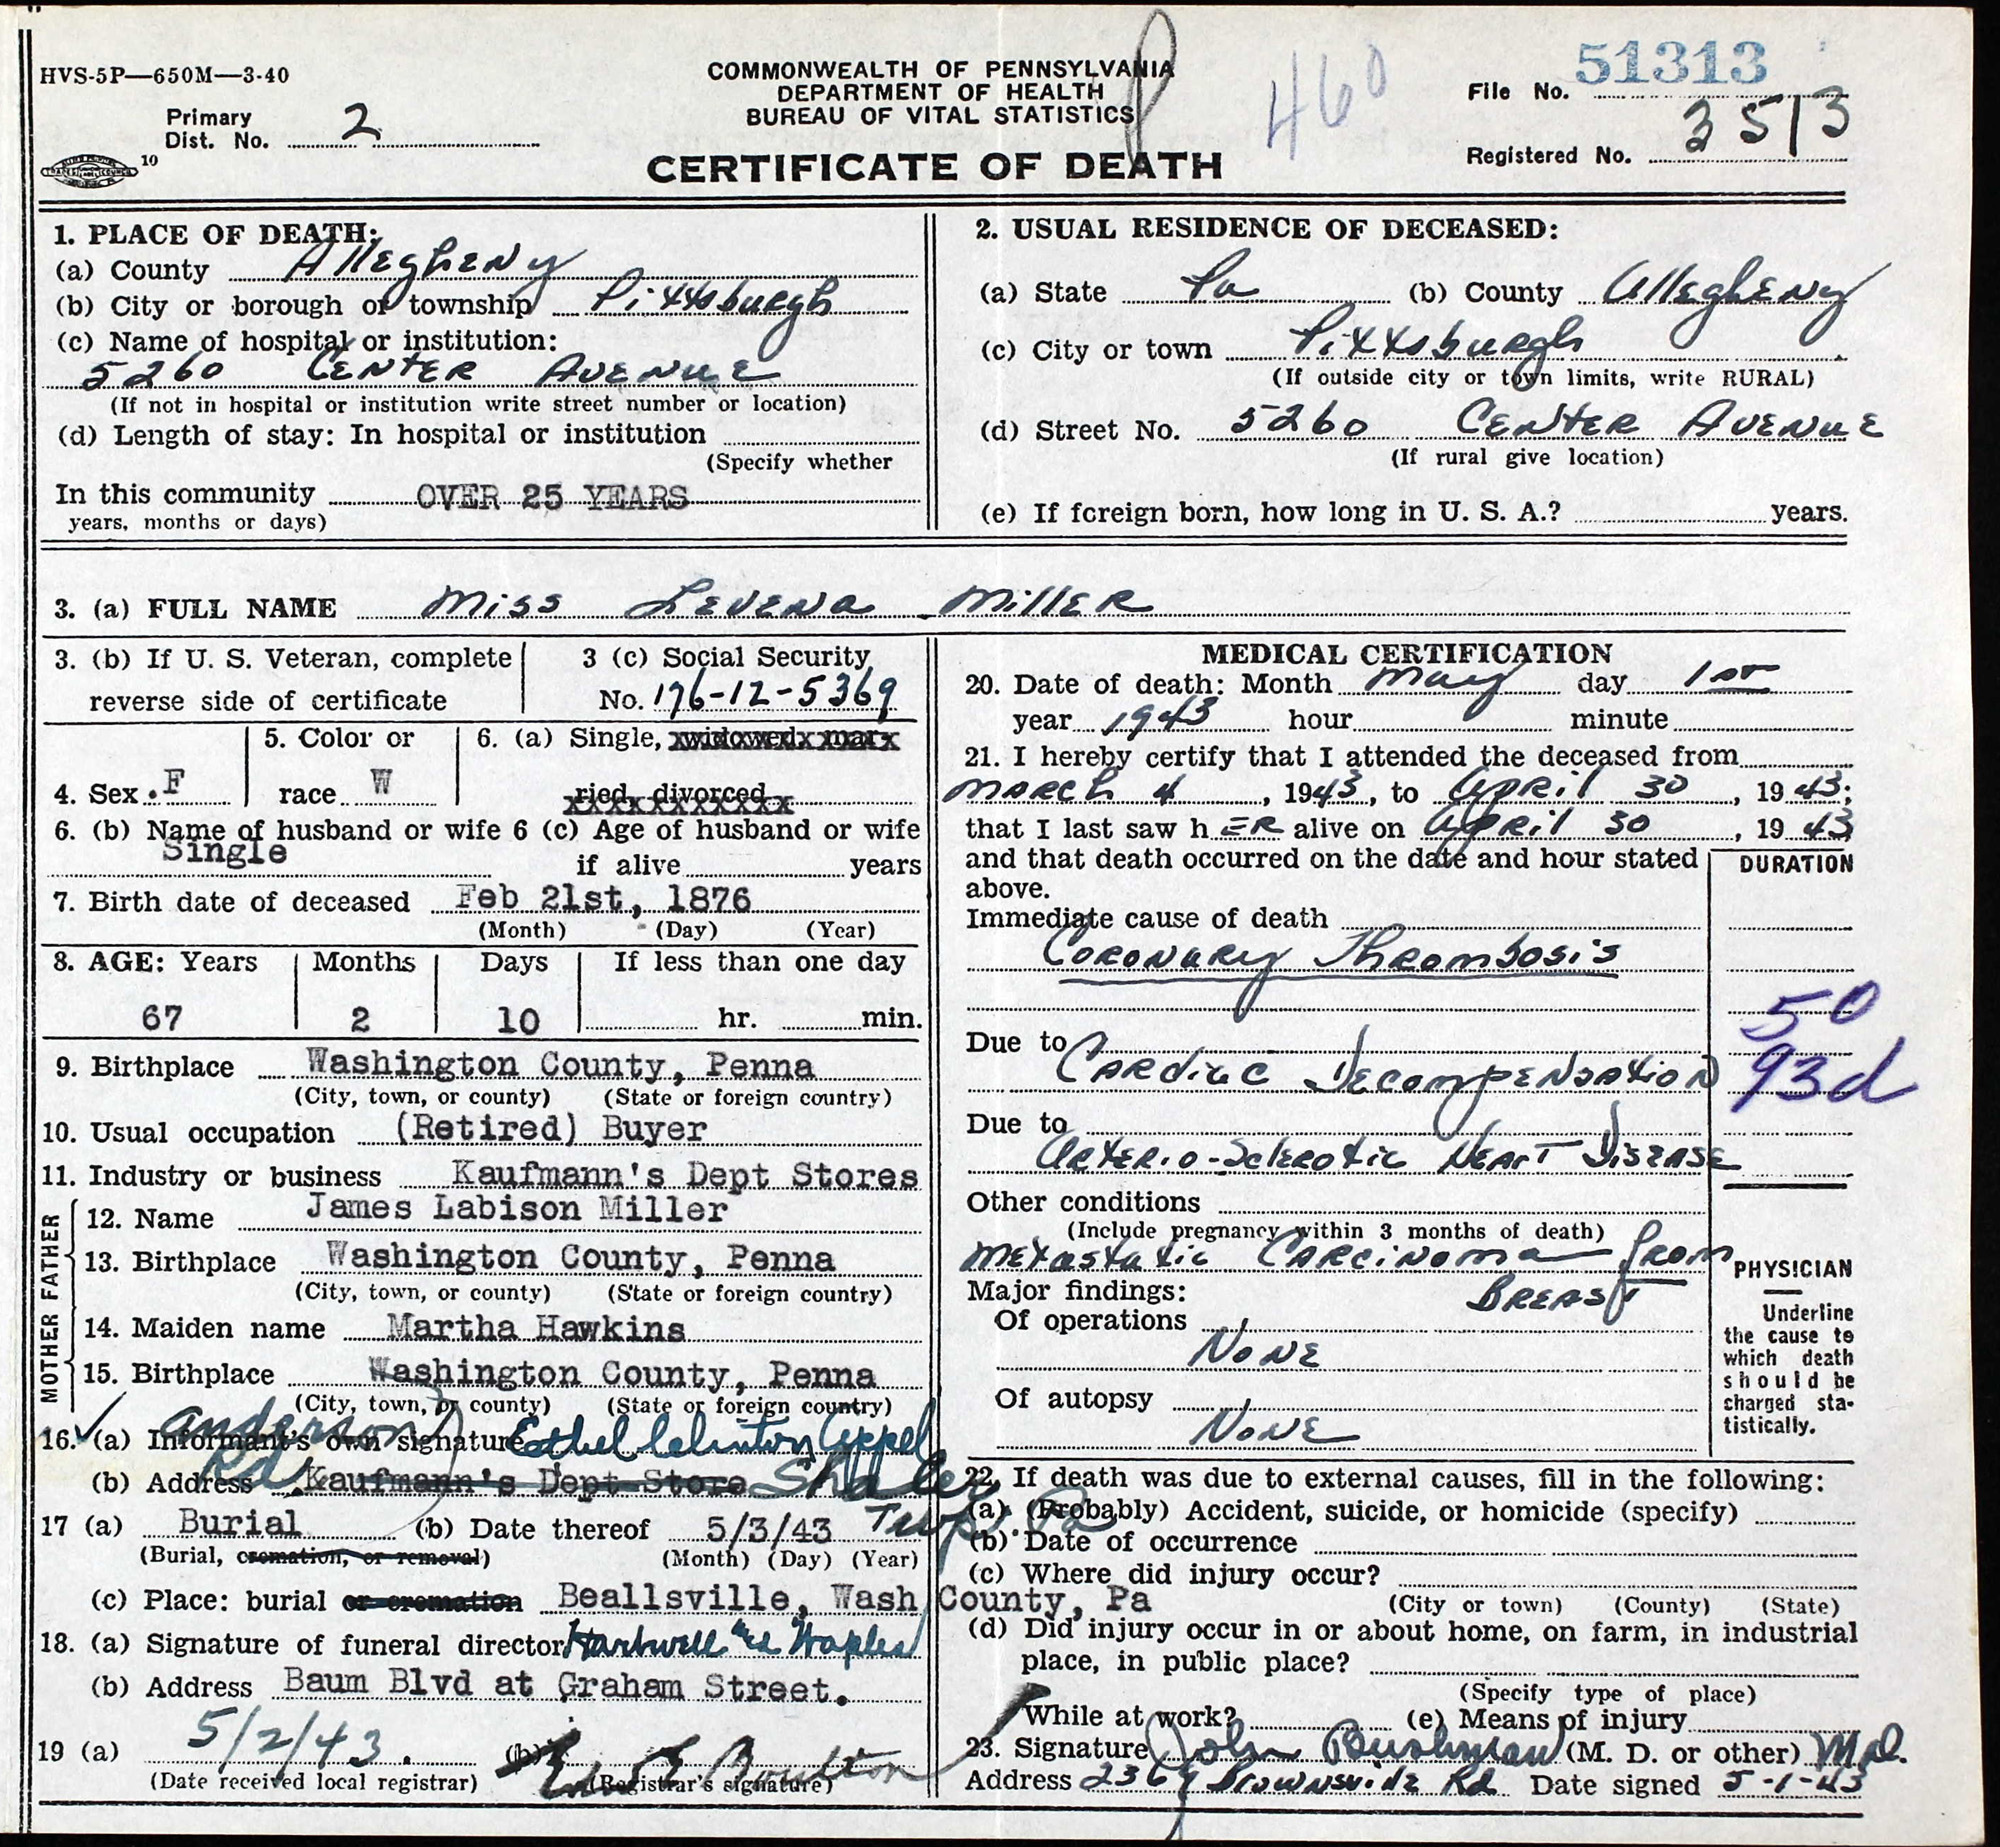 HVS-5P—650M—3-40
COMMONWEALTH OF PENNSYLVANIA
DEPARTMENT OF HEALTH
BUREAU OF VITAL STATISTICS
CERTIFICATE OF DEATH
460
File No. 51313
Registered No. 3513
Primary
Dist. No. 2
10
1. PLACE OF DEATH:
(a) County Allegheny
(b) City or borough or township Pittsburgh
(c) Name of hospital or institution:
5260 Center Avenue
(If not in hospital or institution write street number or location)
(d) Length of stay: In hospital or institution
(Specify whether
In this community OVER 25 YEARS
years, months or days)
2. USUAL RESIDENCE OF DECEASED:
(a) State Pa (b) County Allegheny
(c) City or town Pittsburgh
(If outside city or town limits, write RURAL)
(d) Street No. 5260 Center Avenue
(If rural give location)
(e) If foreign born, how long in U. S. A.? years.
3. (a) FULL NAME Miss Levena Miller
3. (b) If U. S. Veteran, complete
reverse side of certificate
3 (c) Social Security
No. 176-12-5369
4. Sex F
5. Color or
race W
6. (a) Single, widowed, mar-
ried, divorced
6. (b) Name of husband or wife
Single
6 (c) Age of husband or wife
if alive years
7. Birth date of deceased Feb 21st, 1876
(Month) (Day) (Year)
8. AGE: Years Months Days If less than one day
67 2 10 hr. min.
9. Birthplace Washington County, Penna
(City, town, or county) (State or foreign country)
10. Usual occupation (Retired) Buyer
11. Industry or business Kaufmann's Dept Stores
FATHER
12. Name James Labison Miller
13. Birthplace Washington County, Penna
(City, town, or county) (State or foreign country)
MOTHER
14. Maiden name Martha Hawkins
15. Birthplace Washington County, Penna
(City, town, or county) (State or foreign country)
16. (a) Informant's own signature Ethel Clinton Appel
(b) Address Kaufmann's Dept Store Anderson Rd Shaler Twp. Pa
17 (a) Burial (b) Date thereof 5/3/43
(Burial, cremation, or removal) (Month) (Day) (Year)
(c) Place: burial or cremation Beallsville, Wash County, Pa
18. (a) Signature of funeral director
(b) Address Baum Blvd at Graham Street.
19 (a) 5/2/43. (b)
(Date received local registrar) (Registrar's signature)
MEDICAL CERTIFICATION
20. Date of death: Month May day 1st
year 1943 hour minute
21. I hereby certify that I attended the deceased from
March 4, 1943, to April 30, 1943;
that I last saw her alive on April 30, 1943
and that death occurred on the date and hour stated
above.
DURATION
Immediate cause of death
Coronary Thrombosis
50
93d
Due to
Cardiac Decompensation
Due to
Arterio-Sclerotic Heart Disease
Other conditions
(Include pregnancy within 3 months of death)
Metastatic Carcinoma from
Breast
Major findings:
Of operations
None
Of autopsy
None
PHYSICIAN
Underline
the cause to
which death
should be
charged sta-
tistically.
22. If death was due to external causes, fill in the following:
(a) (Probably) Accident, suicide, or homicide (specify)
(b) Date of occurrence
(c) Where did injury occur?
(City or town) (County) (State)
(d) Did injury occur in or about home, on farm, in industrial
place, in public place?
(Specify type of place)
While at work? (e) Means of injury
23. Signature John Bushman (M. D. or other) M.D.
Address 2369 Brownsville Rd Date signed 5-1-43